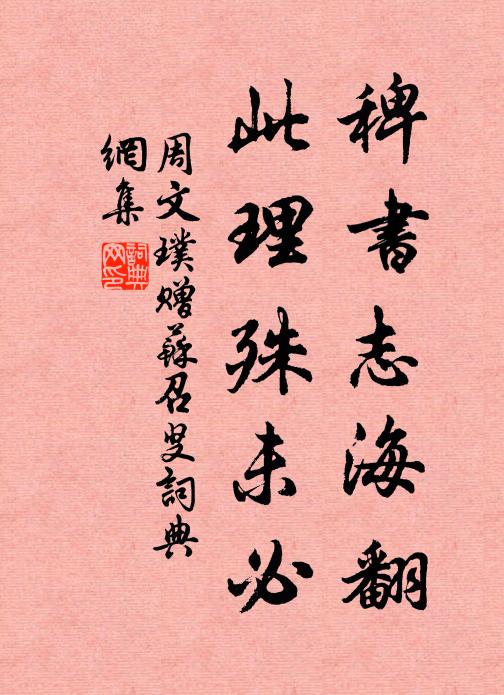 稗書志海翻
此理殊未必
周文璞贈蘇召叟詞典
網集
詞典
网印